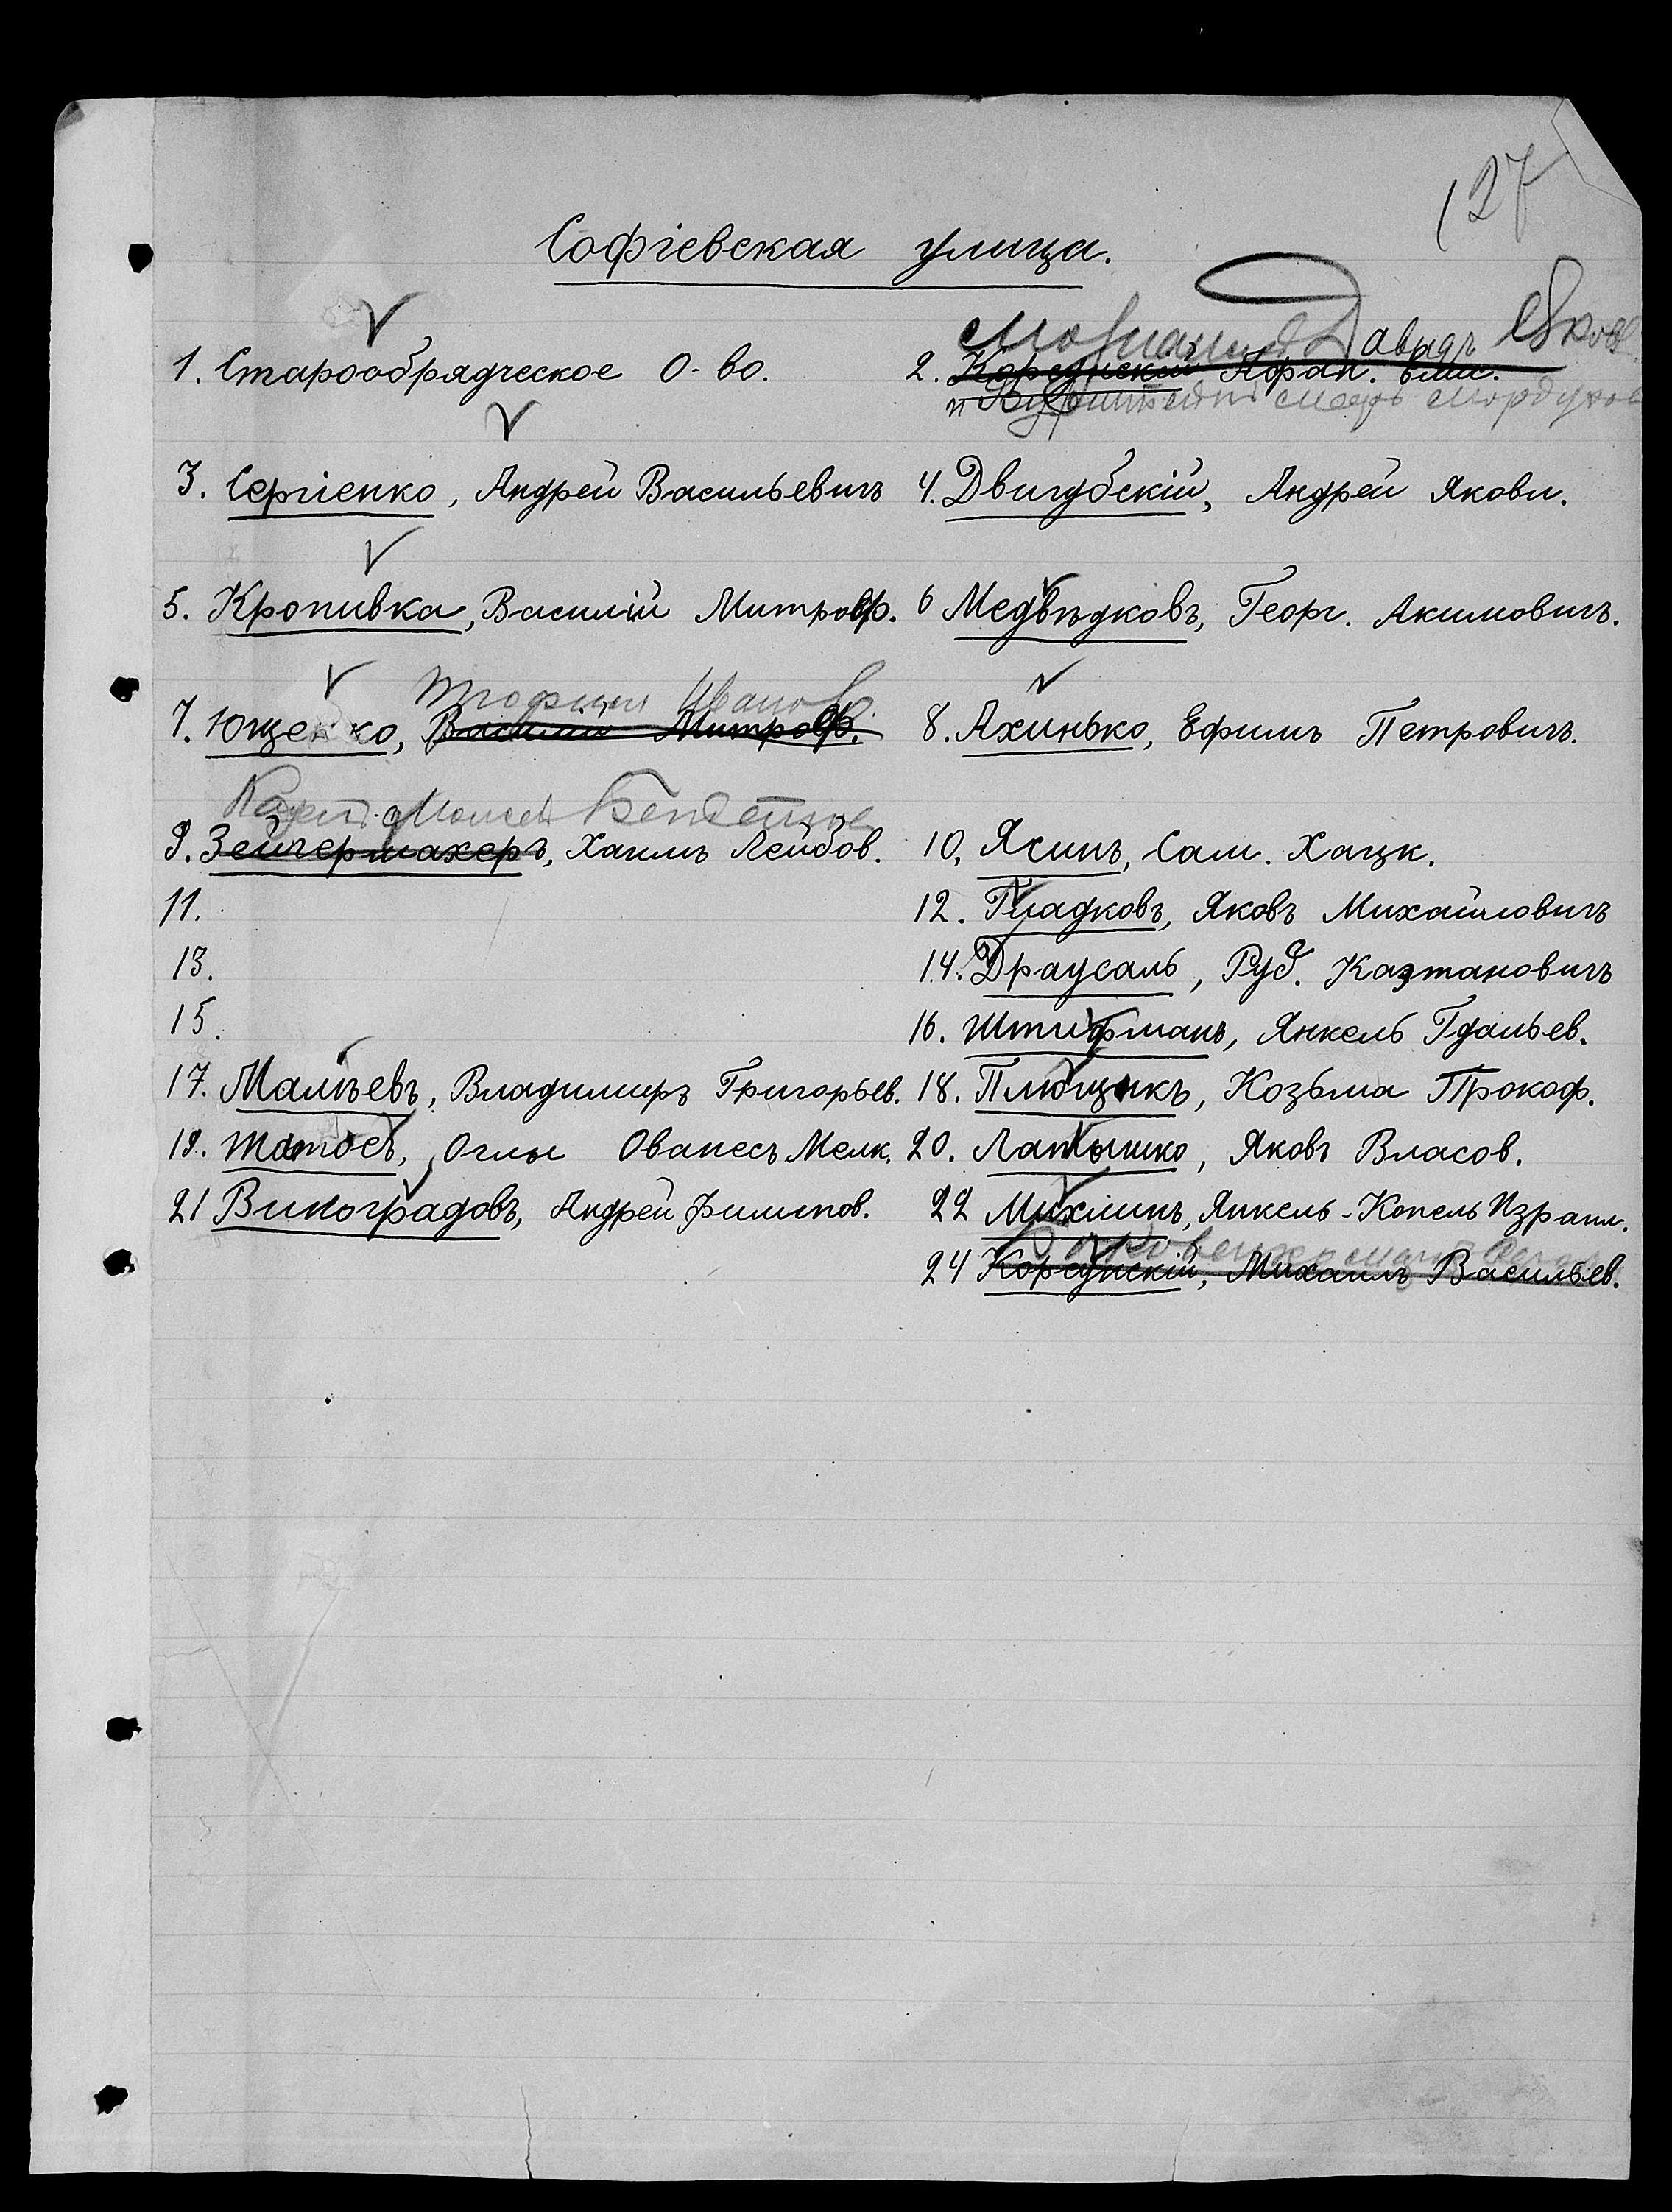 127
Софіевская улица.
1. Старообрядческое О-во.
Давидъ Яков.
2. Корсунскій
3. Сергіенко, Андрей Васильевичъ
4. Двигубскій, Андрей Яковл.
5. Кропивка, Василій Митроф.
6 Медвѣдковъ, Георг. Акимовичъ.
Трофим Иванов.
7. Ющенко, Василій Митроф.
8. Ахинько, Ефимъ Петровичъ.
Моисей
9. Зейгермахеръ, Хаимъ Лейбов.
10. Ясинъ, Сам. Хацк.
11.
12. Гладковъ, Яковъ Михайловичъ
13.
14. Драусаль, Руд. Каэтановичъ
15.
16. Штифманъ, Янкель Гдальев.
17. Малѣевъ, Владимиръ Григорьев.
18. Плющикъ, Козьма Прокоф.
19. Оглы Ованесъ Мелк.
20. Латышко, Яковъ Власов.
21 Виноградовъ, Андрей Филипов.
22 Михлинъ, Янкель-Копель Израил.
24 Корсунскій, Михаилъ Васильев.